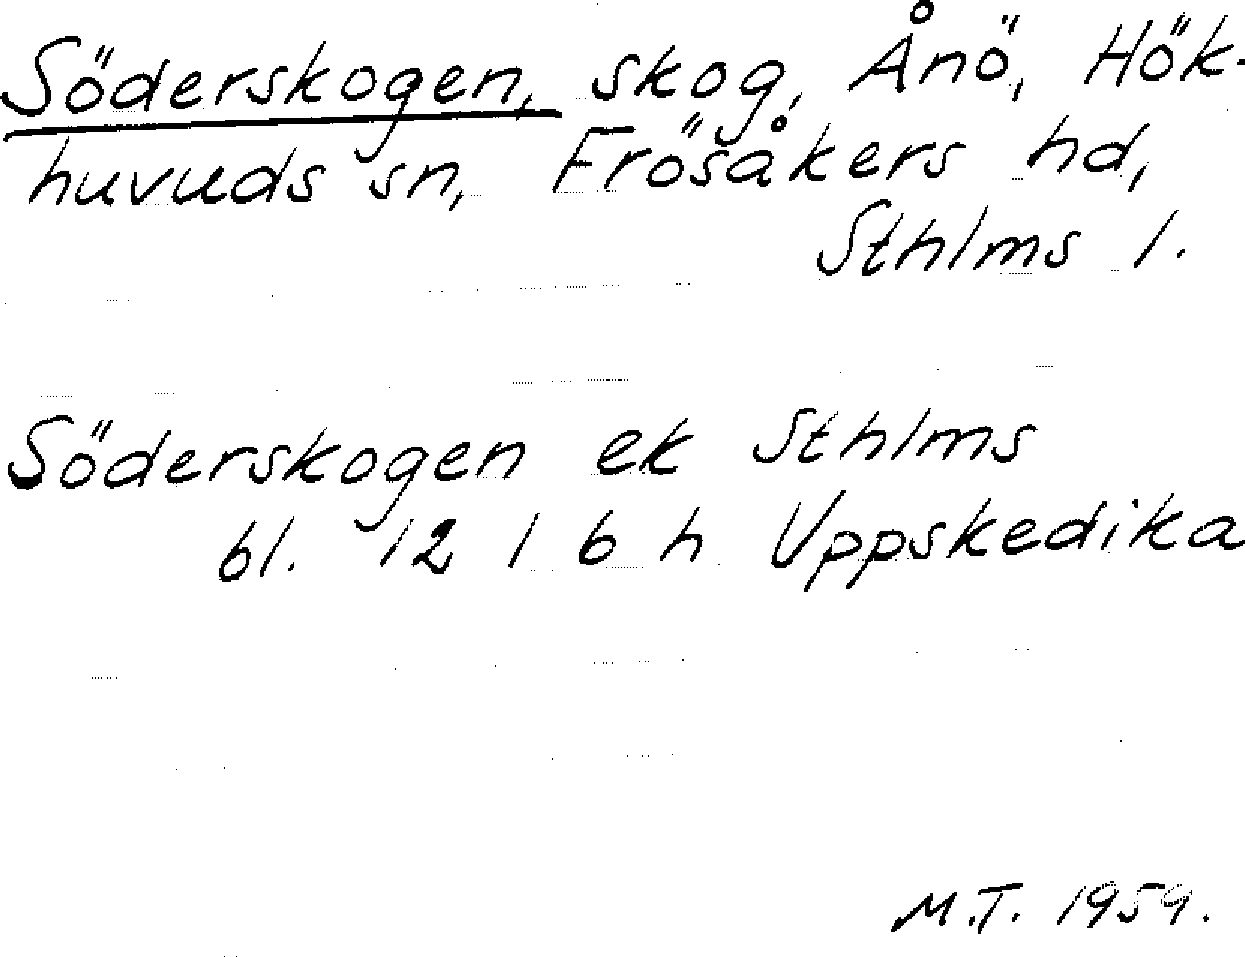 Söderskogen, skog, Ånö, Hök-
huvuds sn, Frösåkers hd,
Sthlms l.
Söderskogen ek Sthlms
bl. 12 I 6 h Uppskedika
M.T. 1959.